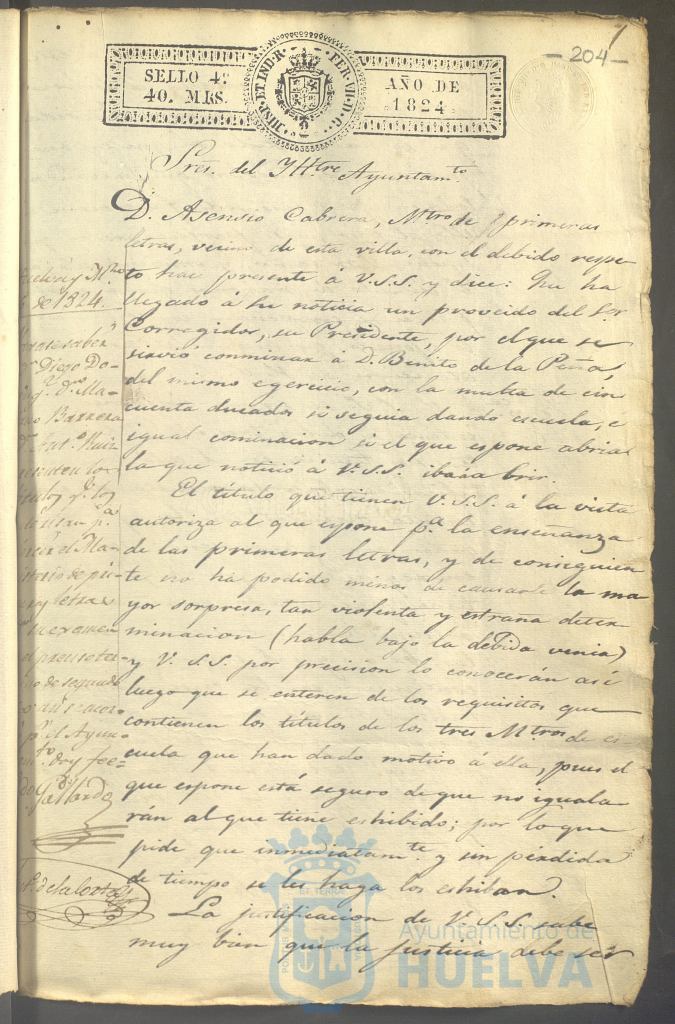 7
— 204 —
SELLO 4º
40. MRS.
HISP. ET IND. R. FER. VII. D. G.
AÑO DE
1824
Sres. del Yltre Ayuntamto.
D. Asensio Cabrera, Mtro de primeras
letras, vecino de esta villa, con el debido respe-
to hace presente á V.S.S. y dice: Que ha
llegado á su noticia un proveido del Sor
Corregidor, su Presidente, por el que se
sirvió conminar á D. Benito de la Peña,
del mismo egercicio, con la multa de cin
cuenta ducados si seguia dando escuela, e
igual cominacion si el que espone abria
la que notició á V.S.S. iba á abrir.
El título que tienen V.S.S. á la vista
autoriza al que espone pa. la enseñanza
de las primeras letras, y de consiguien
te no ha podido menos de causarle la ma
yor sorpresa, tan violenta y estraña deter
minacion (habla bajo la debida venia)
y V.S.S. por precision lo conocerán así
luego que se enteren de los requisitos que
contienen los títulos de los tres Mtros de es
cuela que han dado motivo á ella, pues el
que espone está seguro de que no iguala
rán al que tiene eshibido; por lo que
pide que inmediatamte. y sin pérdida
de tiempo se les haga los eshiban.
La justificacion de V.S.S. sabe
muy bien que la justicia debe ser
de 1824.
Diego Do-
Barrera
Ruiz
el Ma-
letras
su examen
de segundo
el Ayun-
Gallardo
Ayuntamiento de
HUELVA